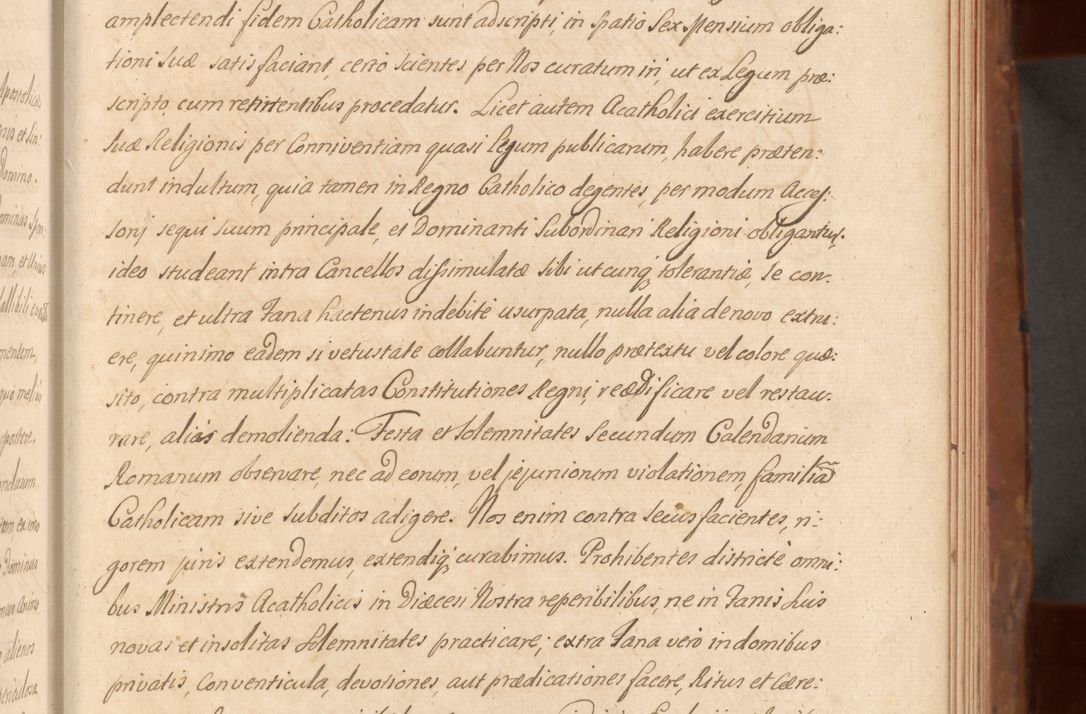 amplectendi fidem Catholicam sunt adscripti, in spatio Sex Mensium obliga:
tioni Suæ satisfaciant, certò scientes per Nos curatum iri, ut ex Legum præ:
scripto, cum retinentibus procedatur. Licet autem Acatholici exercitium
Suæ Religionis per Conniventiam quasi legum publicarum, habere præten:
dunt indultum, quia tamen in Regno Catholico degentes, per modum Acces:
sorij sequi suum principale, et Dominanti Subordinari Religioni obligantur,
ideo studeant intra Cancellos dissimulatæ sibi utcunq, tolerantiæ, se con:
tinere, et ultra Fana hactenus indebitè usurpata, nulla alia de novo extru:
ere, quinimo eadem si vetustate collabuntur, nullo prætextu vel colore quæ:
sito, contra multiplicatas Constitutiones Regni, reædificare vel restau:
rare, aliàs demolienda: Festa et Solemnitates Secundum Calendarium
Romanum observare, nec ad eorum, vel jejuniorum violationem, familiã
Catholicam sive Subditos adigere. Nos enim contra Secus facientes, ri:
gorem juris extendemus, extendiq, curabimus. Prohibentes districtè omni:
bus Ministris Acatholicis in Diæcesi Nostra reperibilibus, ne in Fanis Suis
novas et insolitas Solemnitates practicare; extra Fana verò in domibus
privatis, Conventicula, devotiones, aut prædicationes facere, Ritus et Cære: